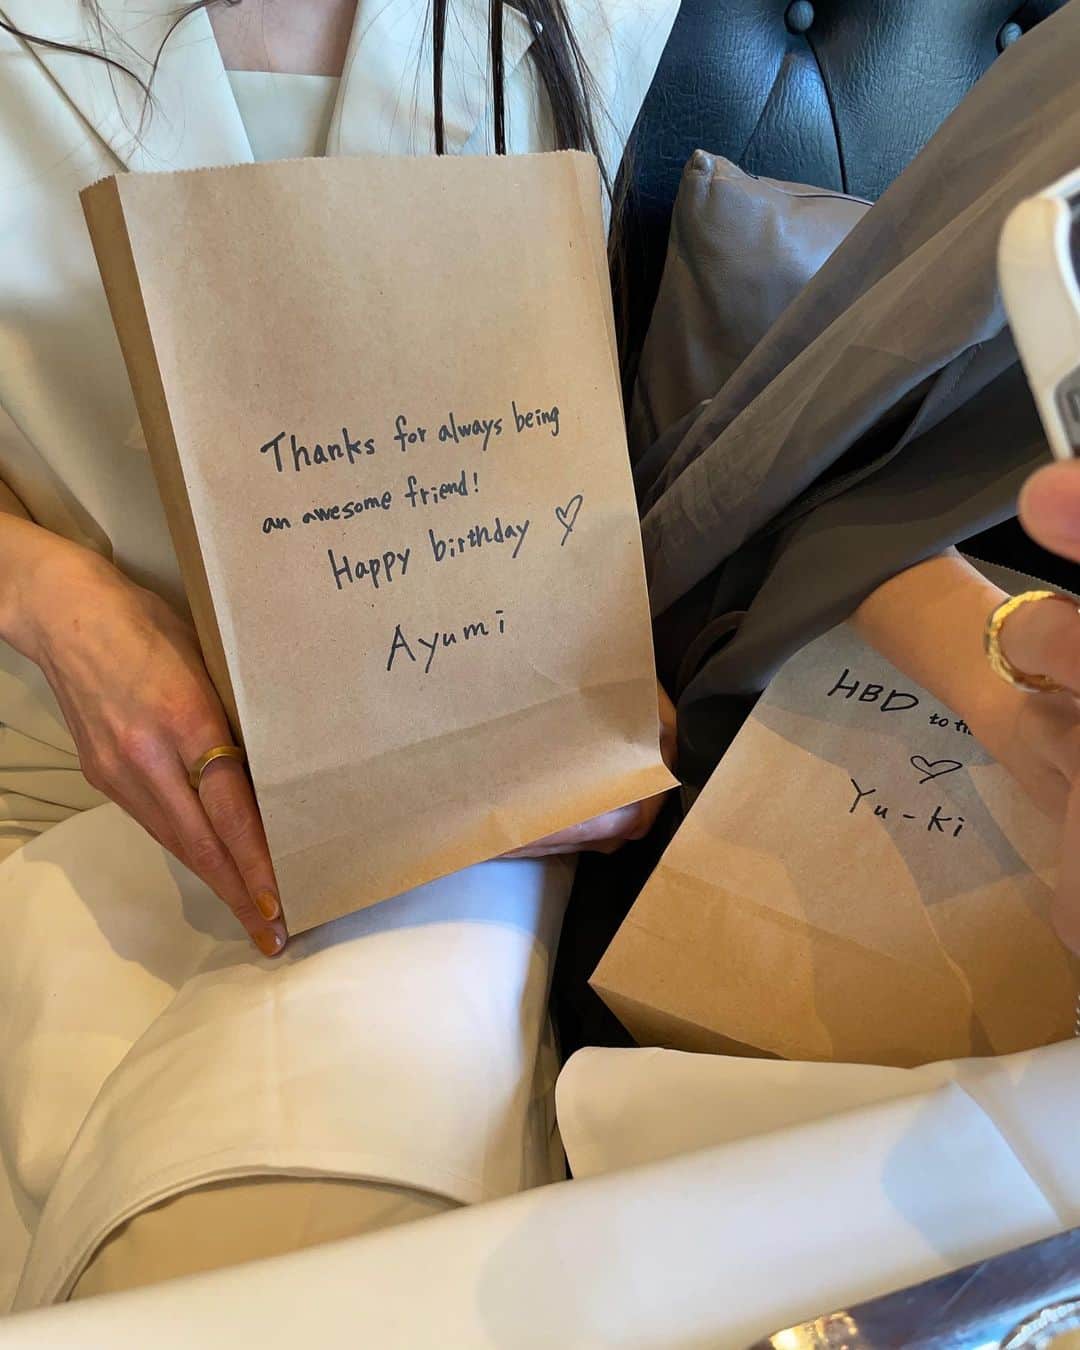 Thanks for always being
an awesome friend!
Happy birthday ♡
Ayumi
HBD to
♡
Yu-ki